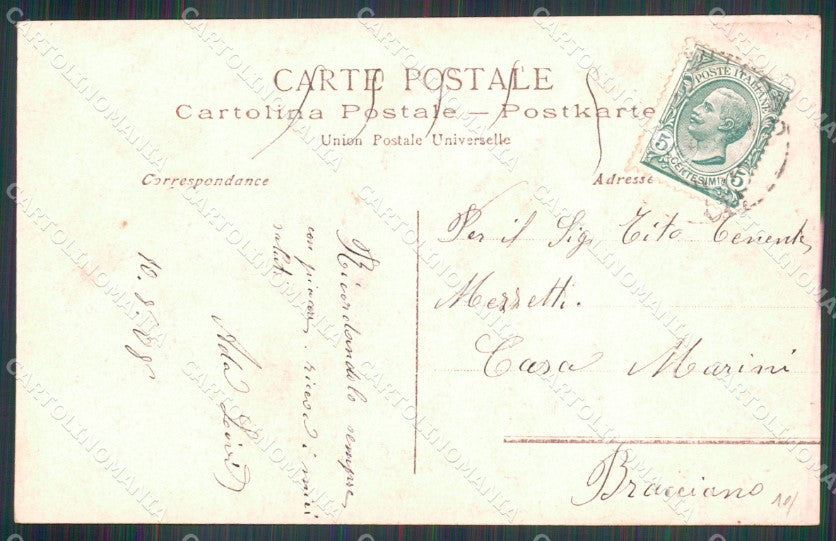 CARTE POSTALE
Cartolina Postale — Postkarte
Union Postale Universelle
Correspondance
Adresse
POSTE ITALIANE
5 CENTESIMI 5
Ricordandolo sempre
con piacere, riceva i miei
saluti
Ada
10.8.08
Per il Sig. Tito Tenente
Mezzetti.
Casa Marini
Bracciano
CARTOLINOMANIA